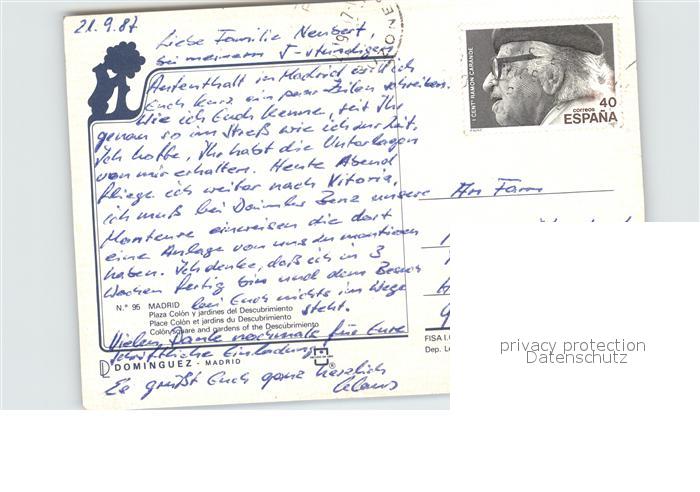 21.9.87
Liebe Familie Neubert,
bei meinem 5-stündigen
Aufenthalt in Madrid will ich
Euch kurz ein paar Zeilen schreiben.
Wie ich Euch kenne, seit Ihr
genau so im Streß wie ich zur Zeit.
Ich hoffe, Ihr habt die Unterlagen
von mir erhalten. Heute Abend
fliege ich weiter nach Vitoria,
ich muß bei Daimler Benz unsere
Monteure einweisen die dort
eine Anlage von uns zu montieren
haben. Ich denke, daß ich in 3
Wochen fertig bin und dem Besuch
bei Euch nichts im Wege
steht.
Vielen Dank nochmals für Eure
schriftliche Einladung
Es grüßt Euch ganz herzlich
Klaus
N.° 95 MADRID
Plaza Colón y jardines del Descubrimiento
Place Colón et jardins du Descubrimiento
Colón square and gardens of the Descubrimiento
DOMINGUEZ - MADRID
I CENT. RAMON CARANDE
correos
40
ESPAÑA
An Fam
FISA I.G
Dep. Le
privacy protection
Datenschutz